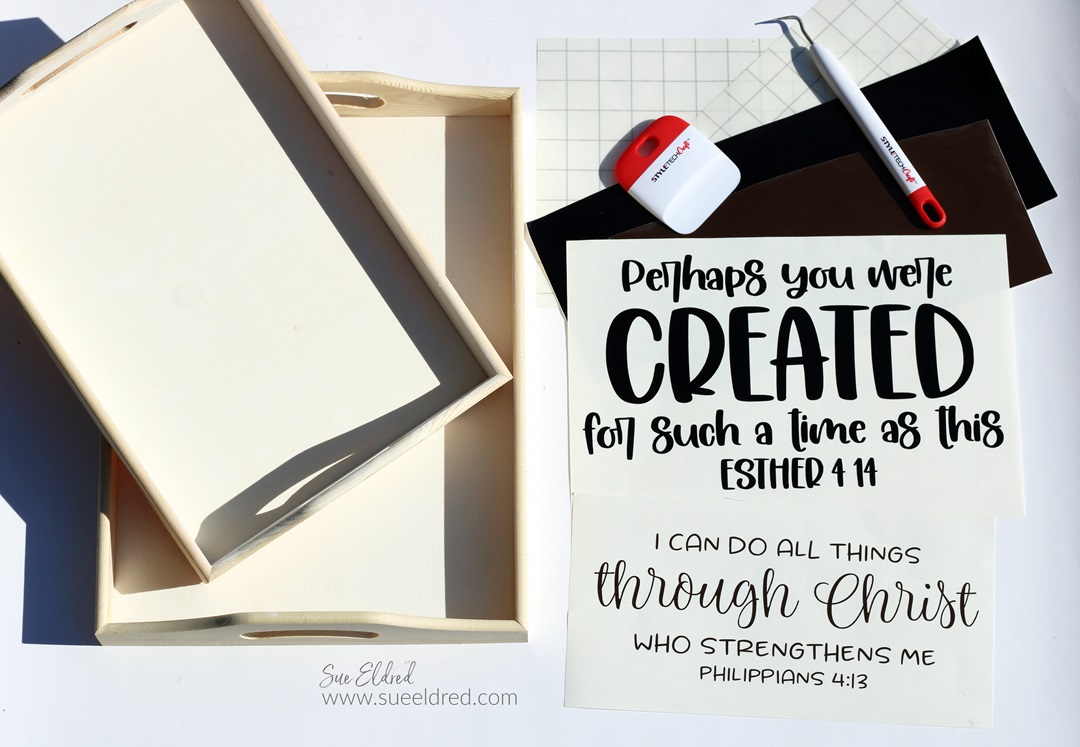 STYLETECHCraft™
STYLETECHCraft™
Perhaps you were
CREATED
for such a time as this
ESTHER 4 14
I CAN DO ALL THINGS
through Christ
WHO STRENGTHENS ME
PHILIPPIANS 4:13
Sue Eldred
www.sueeldred.com